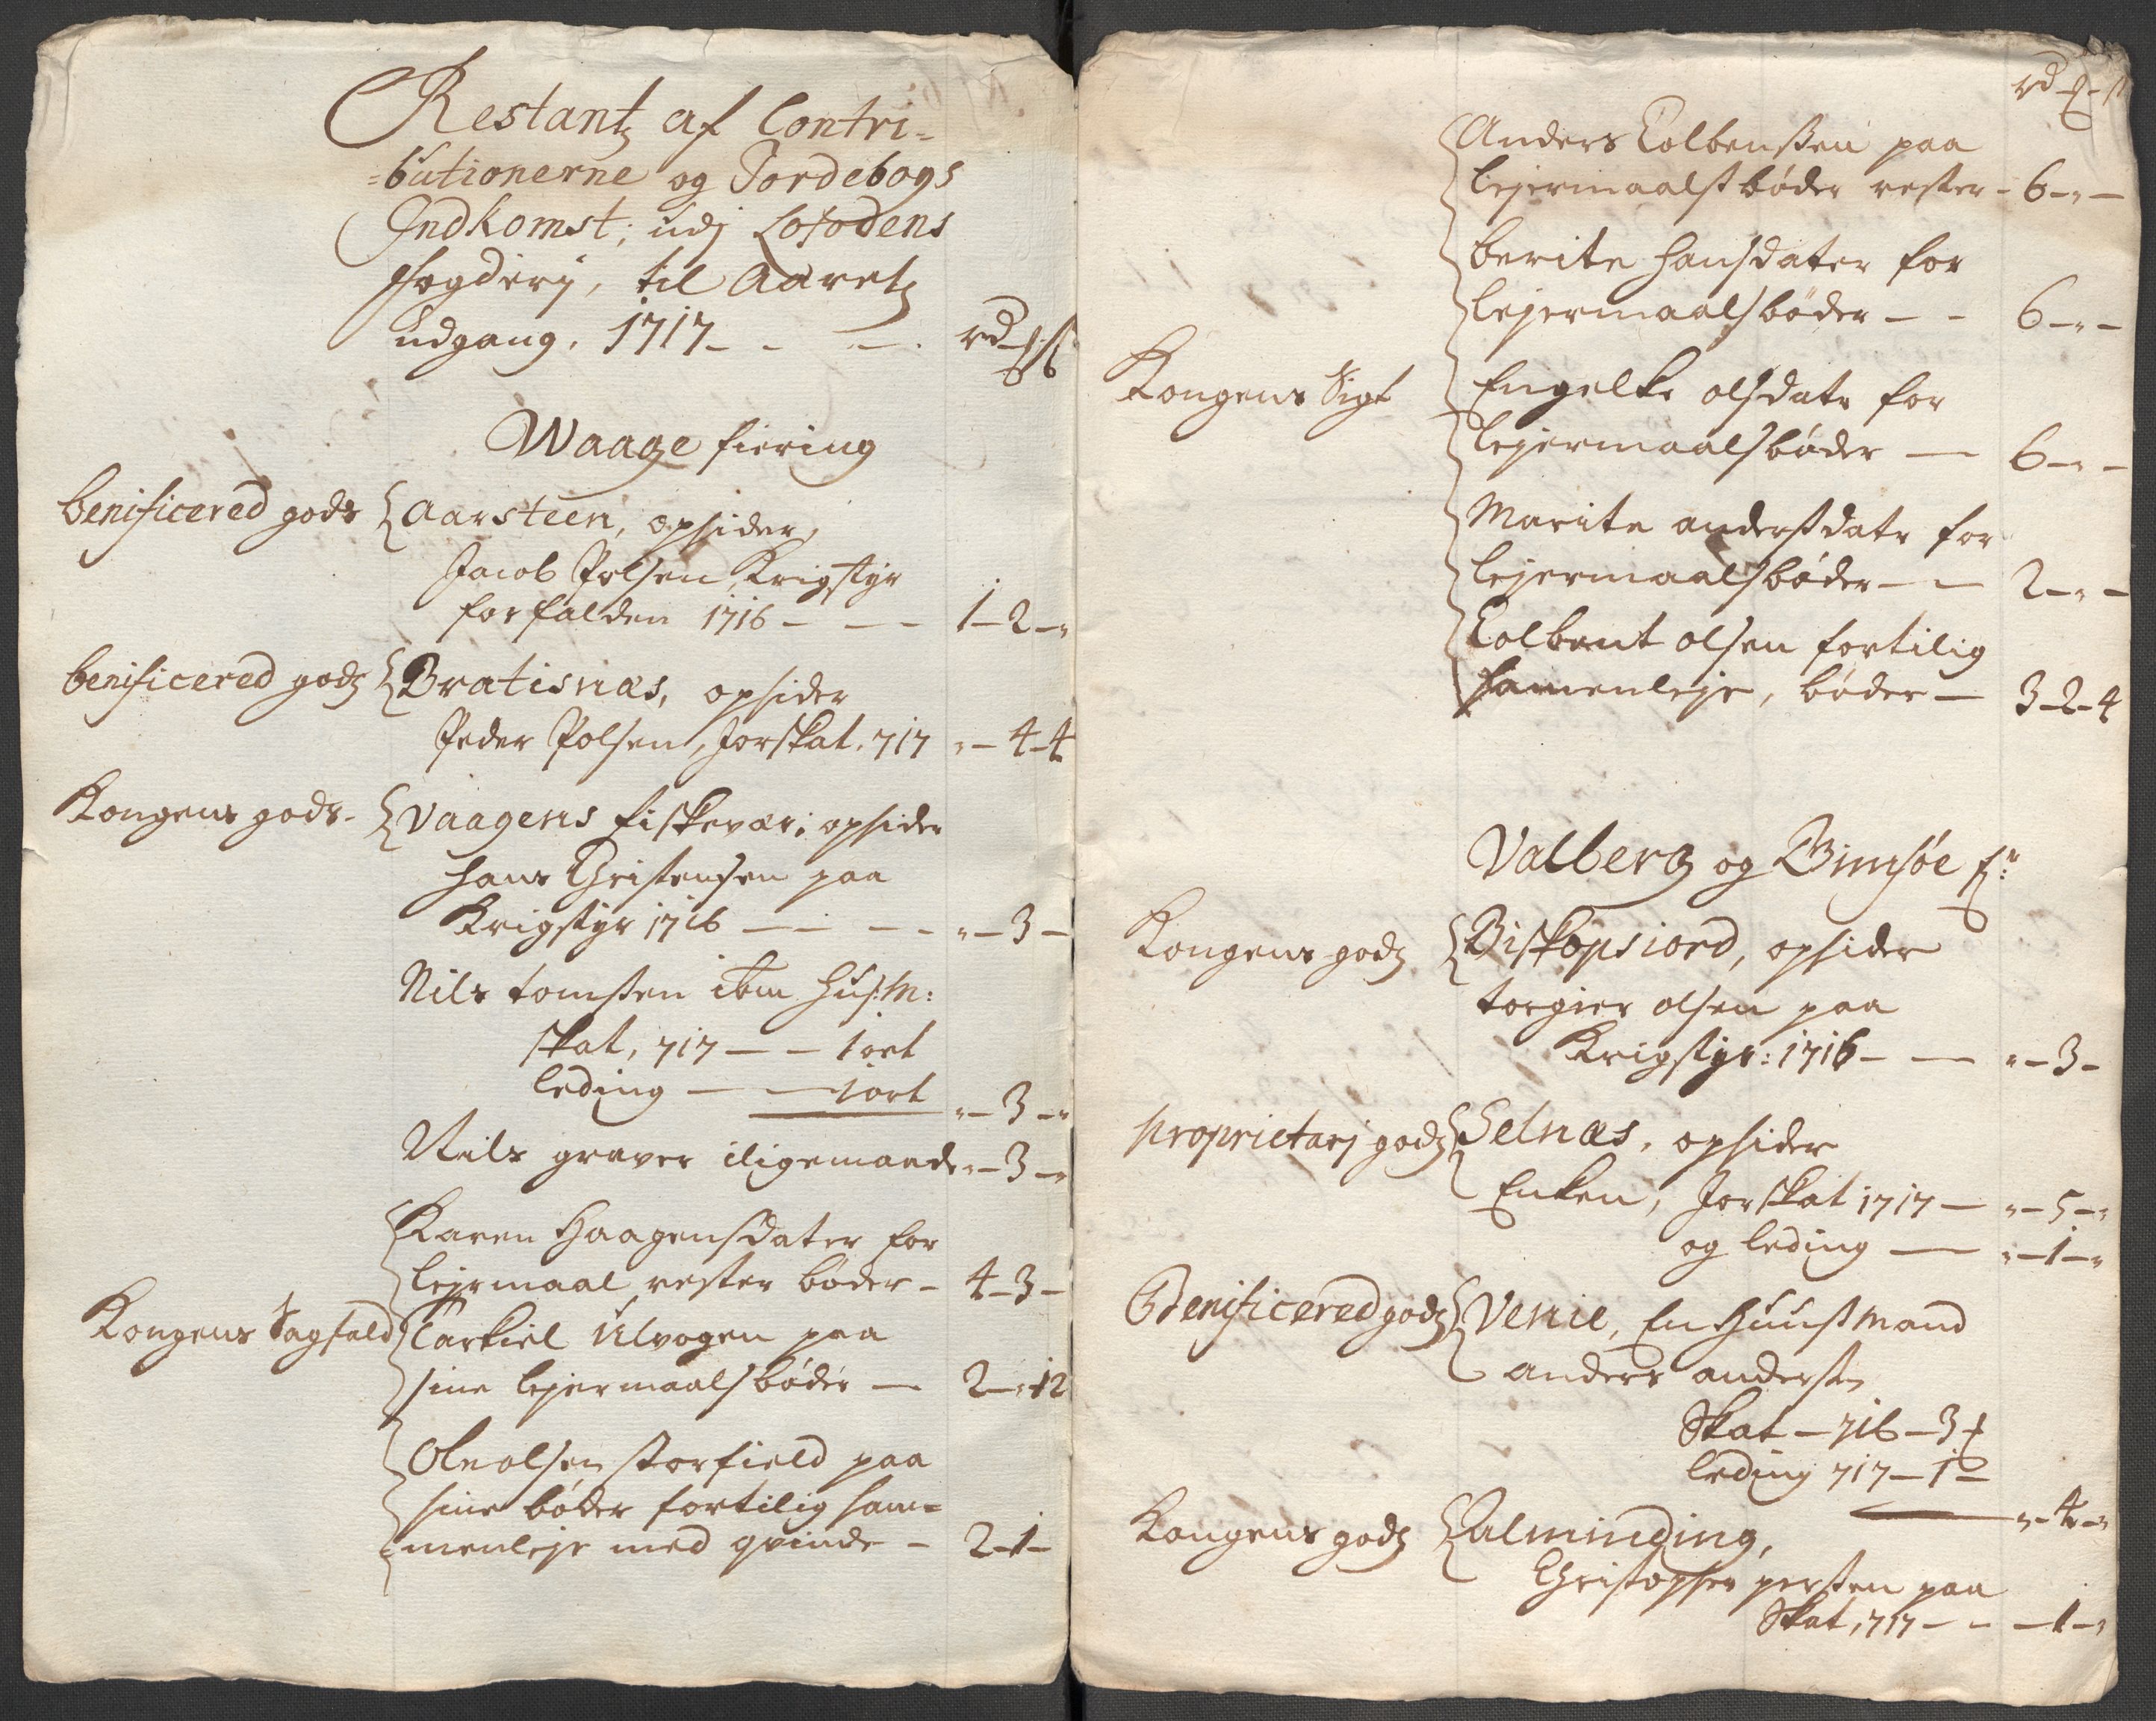 Restantz af Contri-
=butionerne og Jordebogs
Indkomst, udj Lofodens
fogderj, til Aaretz
udgang, 1717 - - - rd
Waage fiering
benificered gods {Aarsteen, opsider,
Jacob Polsen Krigstyr
forfalden 1716 - - - 1-2-"
benificered godz {Bratisnæs, opsider
Peder Polsen, Jorskat, 717 "-4-4
Kongens gods - {Vaagens fiskevær, opsider
Hans Christensen paa
Krigstyr 1716 - - - - "-3-
Nils tomsen ibm Husm:
skat, 717 - - 1 ort
leding - - 1 ort "-3-"
Nils graver iligemaade "-3-"
Karen Haagensdater for
lejrmaal rester bøder - 4-3-
Kongens Sagfald Tarkiel Ulvogen paa
sine lejermaals bøder - 2-"-12
Ole olsen storfield paa
sine bøder fortilig sam=
=menleje med qvinde - 2-1-
rd
Anders Colbensen paa
lejermaalst bøder rester - 6-"-
berite Hansdater for
lejermaals bøder - - 6-"-
Kongens Sigt Engelke olsdatr for
lejermaals bøder - 6-"-
Marite anderstdatr for
lejermaals bøder - - 2-"-
Colbent olsen fortilig
samenleje, bøder - 3-2-4
Valberg og Gimsøe fr:
Kongens godz {Biskopsiord, opsider
torgier olsen paa
Krigstyr: 1716 - - "-3-
proprietarj godz {Selnæs, opsider
Enken, Jorskat 1717 - "-5-"
og leding - "-1-"
Benificered godz {Venie, En Huusmand
anders andersen
Skat - 716 - 3
leding 717 - 1 -
"-4-"
Kongens godz {Valminding,
Christopher persen paa
Skat, 717 - - -1-"